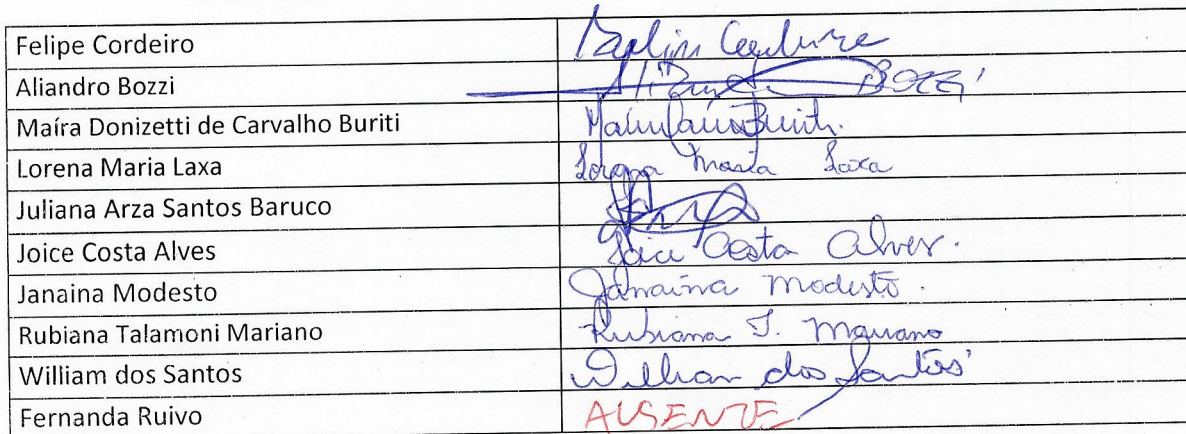 Felipe Cordeiro
Aliandro Bozzi Bozzi
Maíra Donizetti de Carvalho Buriti
Lorena Maria Laxa Lorena Maria Laxa
Juliana Arza Santos Baruco
Joice Costa Alves Joice Costa Alves.
Janaina Modesto Janaina Modesto.
Rubiana Talamoni Mariano Rubiana T. Mariano
William dos Santos William dos Santos
Fernanda Ruivo AUSENTE